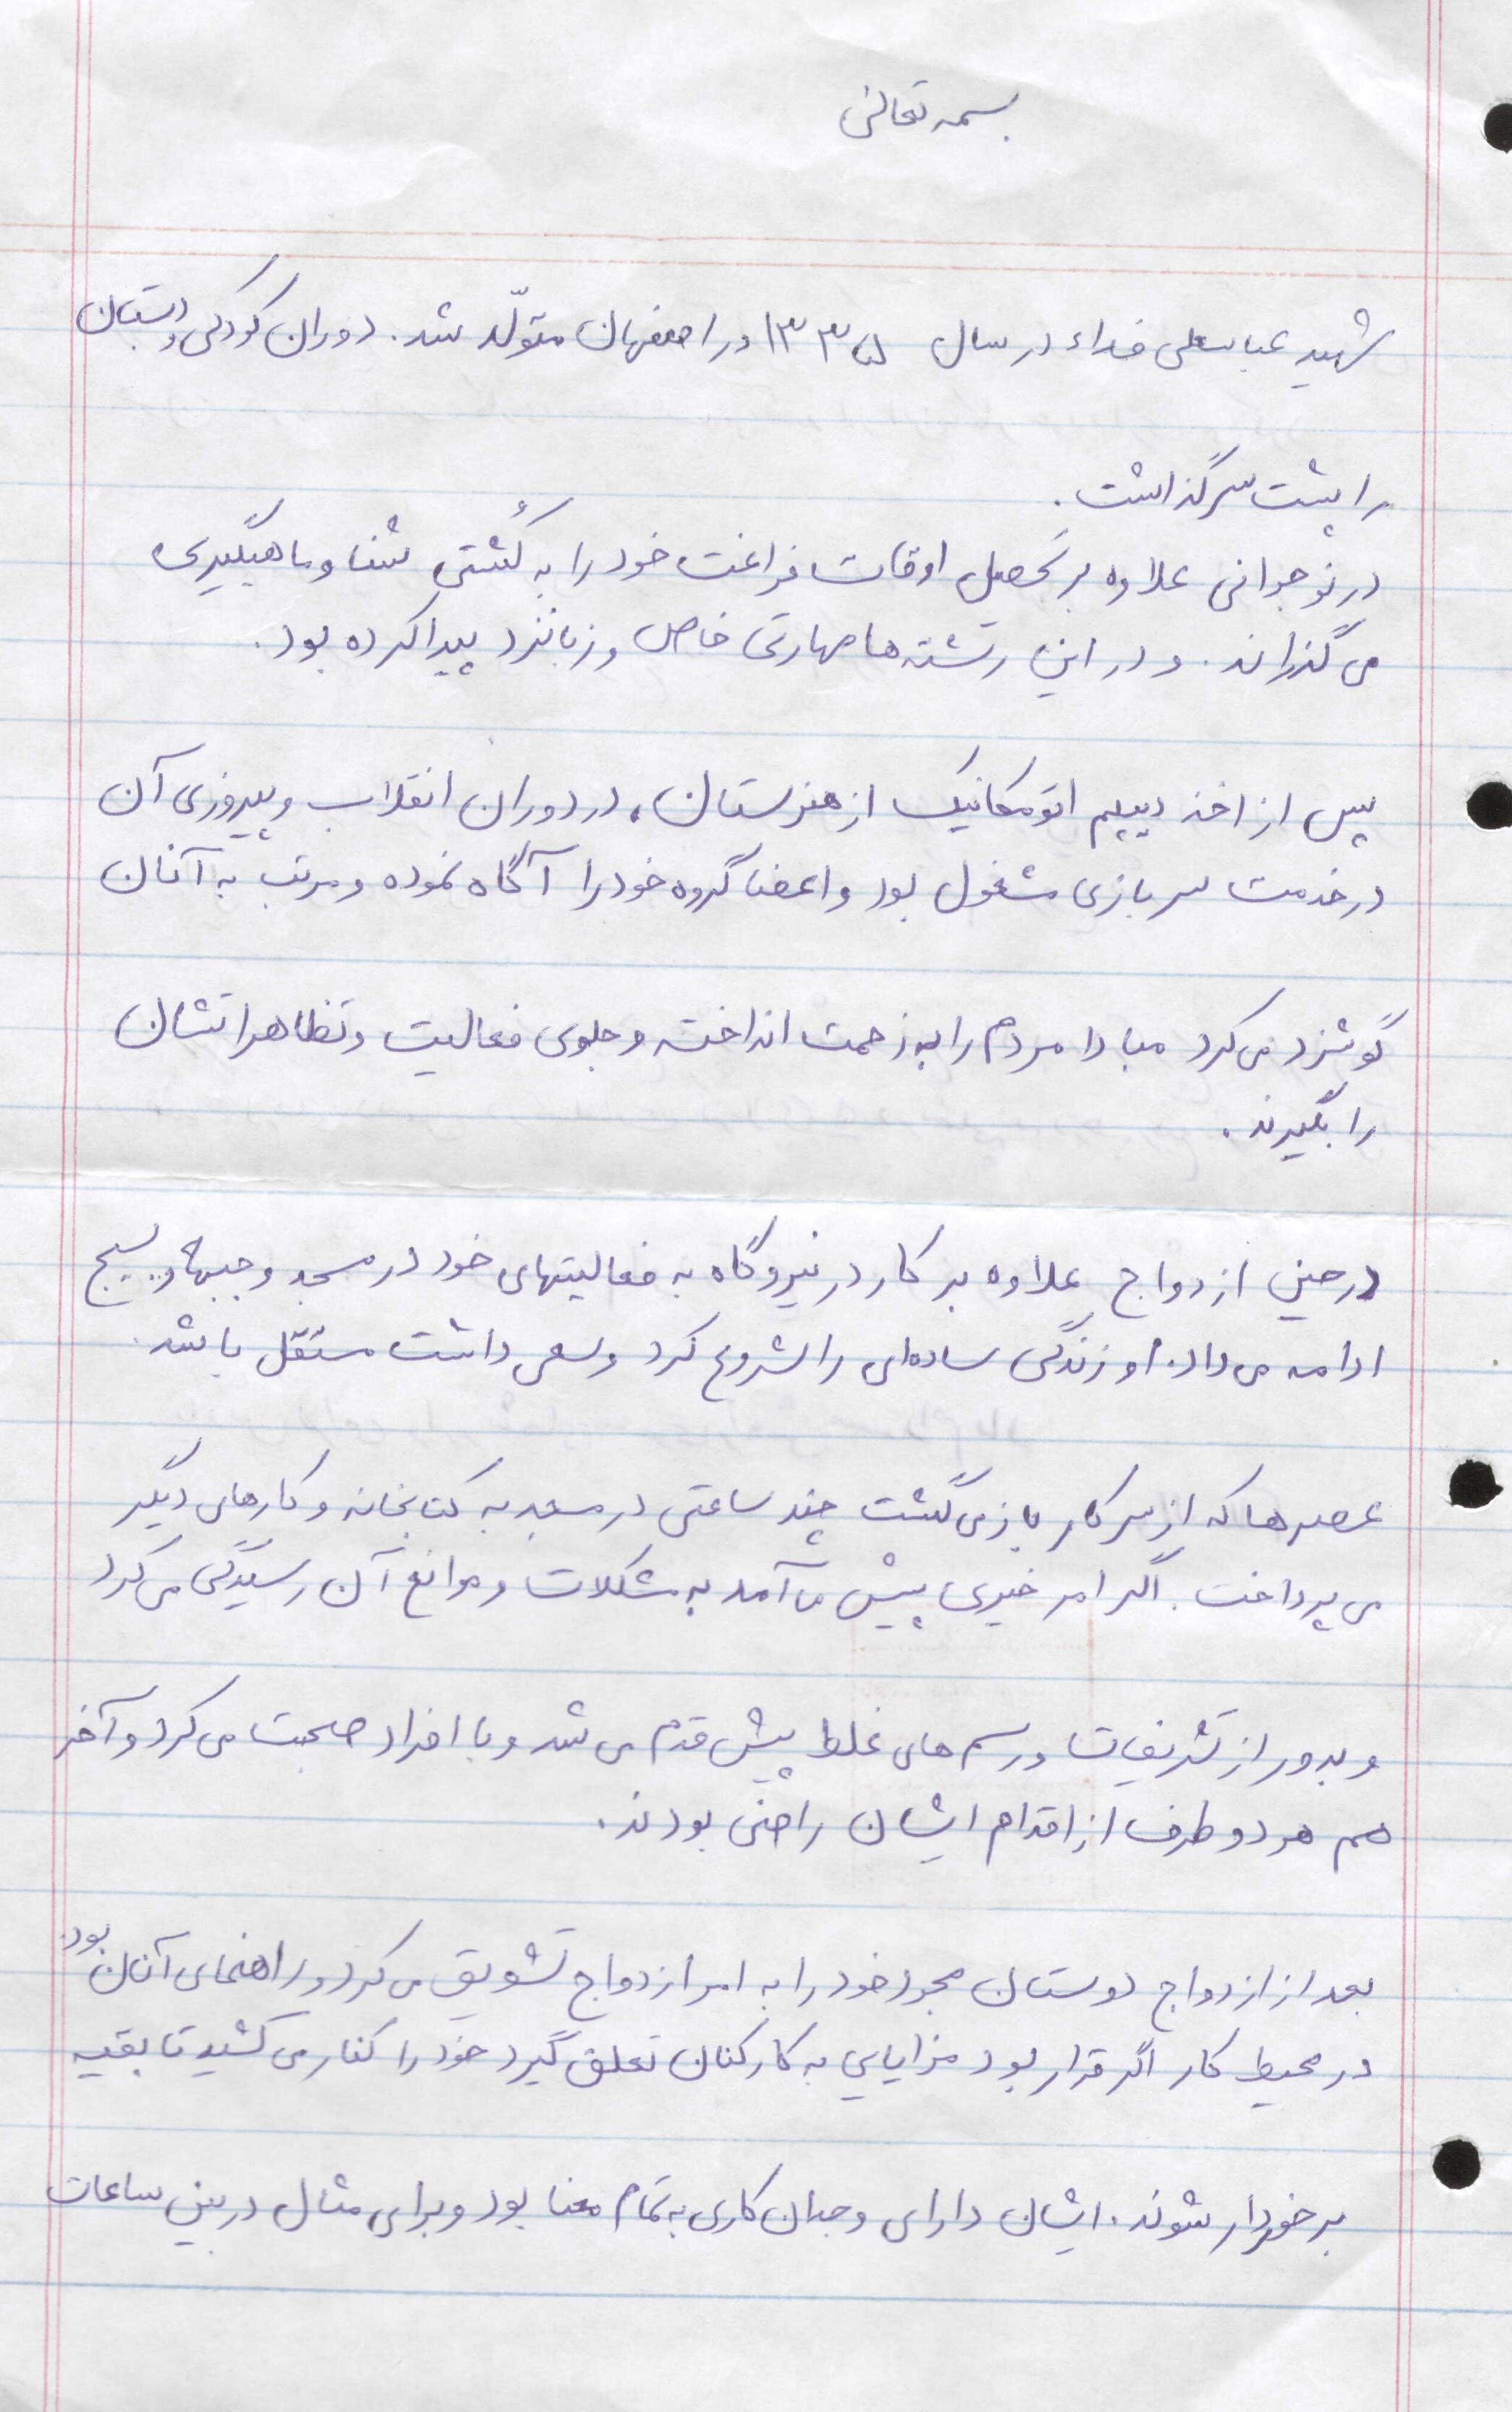 بسمه تعالی
شهید عباسعلی فداء در سال ۱۳۳۵ در اصفهان متولّد شد. دوران کودکی و دبستان
را پشت سر گذاشت.
در نوجوانی علاوه بر تحصیل اوقات فراغت خود را به کُشتی شنا و ماهیگیری
می گذراند. و در این رشته ها مهارتی خاص و زبانزد پیدا کرده بود.
پس از اخذ دیپلم اتومکانیک از هنرستان، در دوران انقلاب و پیروزی آن
در خدمت سربازی مشغول بود و اعضا گروه خود را آگاه نموده و مرتب به آنان
گوشزد می کرد مبادا مردم را به زحمت انداخته و جلوی فعالیت و تظاهراتشان
را بگیرند.
در حین ازدواج علاوه بر کار در نیروگاه به فعالیتهای خود در مسجد و جبهه و بسیج
ادامه می داد. او زندگی ساده‌ای را شروع کرد و سعی داشت مستقل باشد.
عصرها که از سر کار باز می گشت چند ساعتی در مسجد به کتابخانه و کارهای دیگر
می پرداخت. اگر امر خیری پیش می آمد به مشکلات و موانع آن رسیدگی می کرد
و بدور از تشریفات و رسم های غلط پیش قدم می شد و با افراد صحبت می کرد و آخر
هم هر دو طرف از اقدام ایشان راضی بودند.
بعد از ازدواج دوستان مجرد خود را به امر ازدواج تشویق می کرد و راهنمای آنان بود.
در محیط کار اگر قرار بود مزایایی به کارکنان تعلق گیرد خود را کنار می کشید تا بقیه
برخوردار شوند. ایشان دارای وجدان کاری به تمام معنا بود و برای مثال در بین ساعات